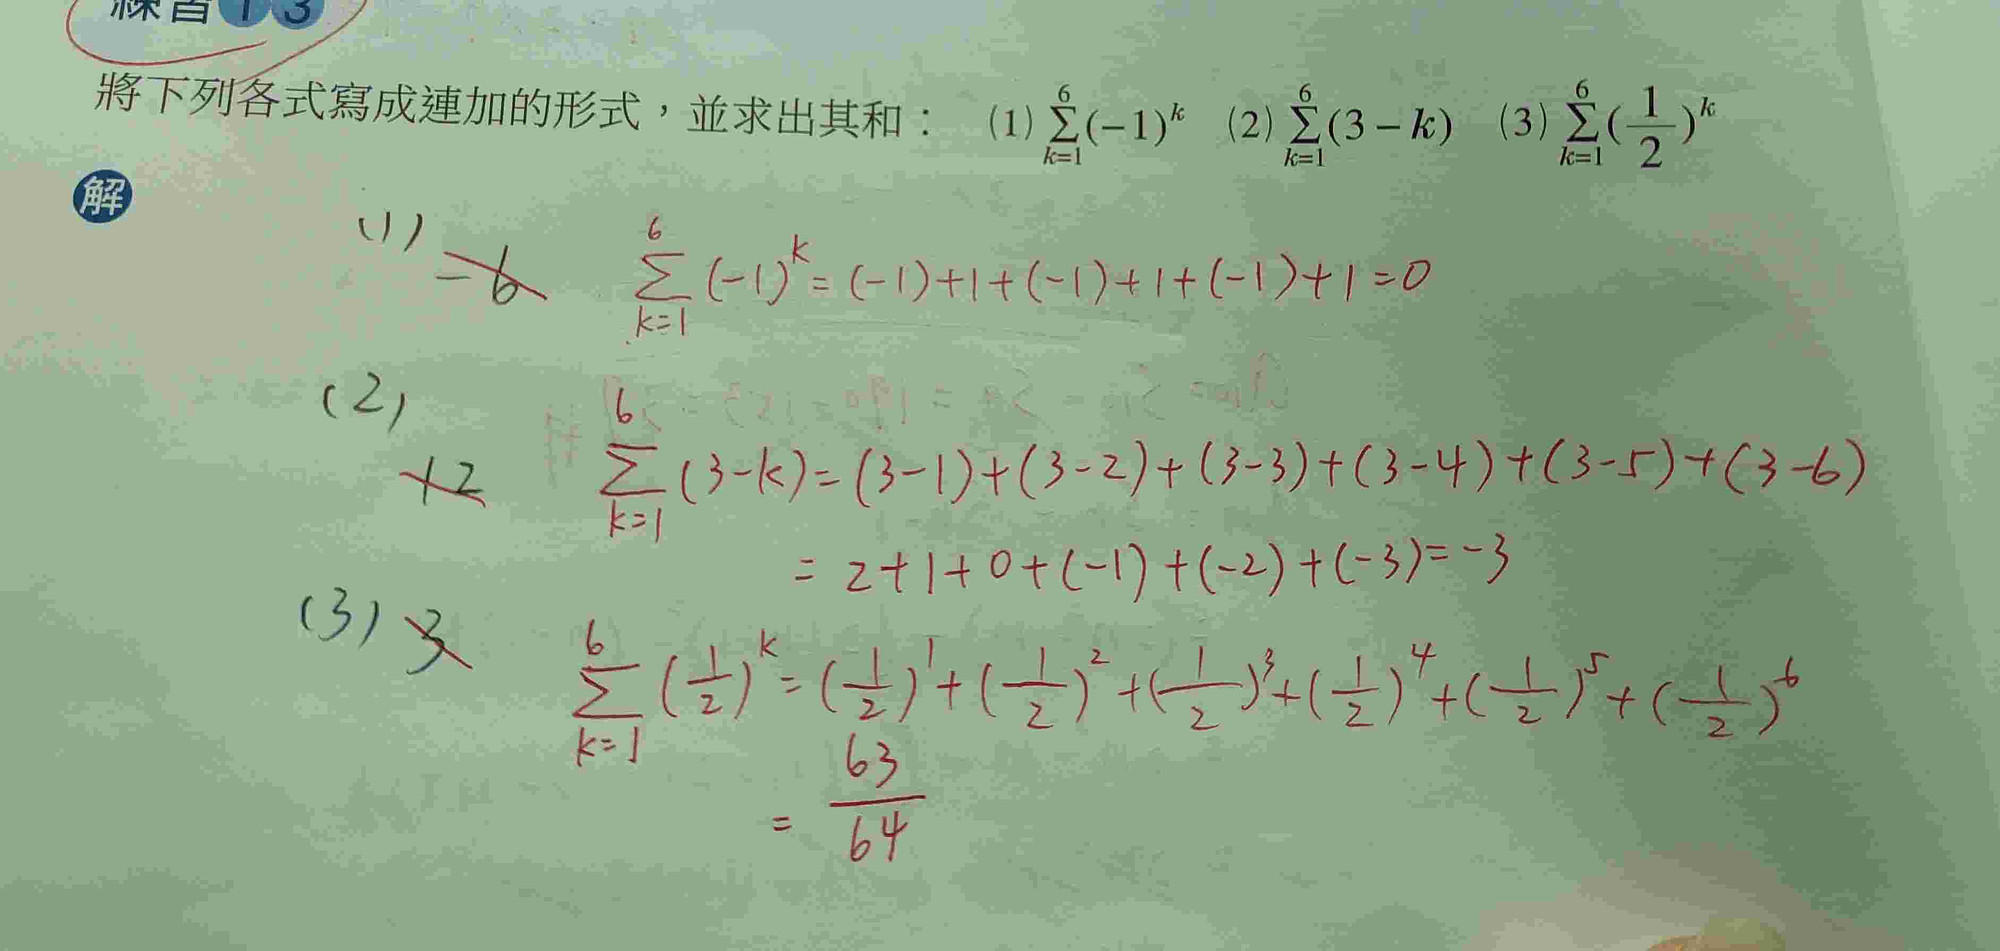 練習 1 3
將下列各式寫成連加的形式，並求出其和： (1) \sum_{k=1}^{6}(-1)^k (2) \sum_{k=1}^{6}(3-k) (3) \sum_{k=1}^{6}(\frac{1}{2})^k
解
(1) -6 \sum_{k=1}^{6}(-1)^k=(-1)+1+(-1)+1+(-1)+1=0
(2) 12 \sum_{k=1}^{6}(3-k)=(3-1)+(3-2)+(3-3)+(3-4)+(3-5)+(3-6)
=2+1+0+(-1)+(-2)+(-3)=-3
(3) 3 \sum_{k=1}^{6}(\frac{1}{2})^k=(\frac{1}{2})^1+(\frac{1}{2})^2+(\frac{1}{2})^3+(\frac{1}{2})^4+(\frac{1}{2})^5+(\frac{1}{2})^6
=\frac{63}{64}